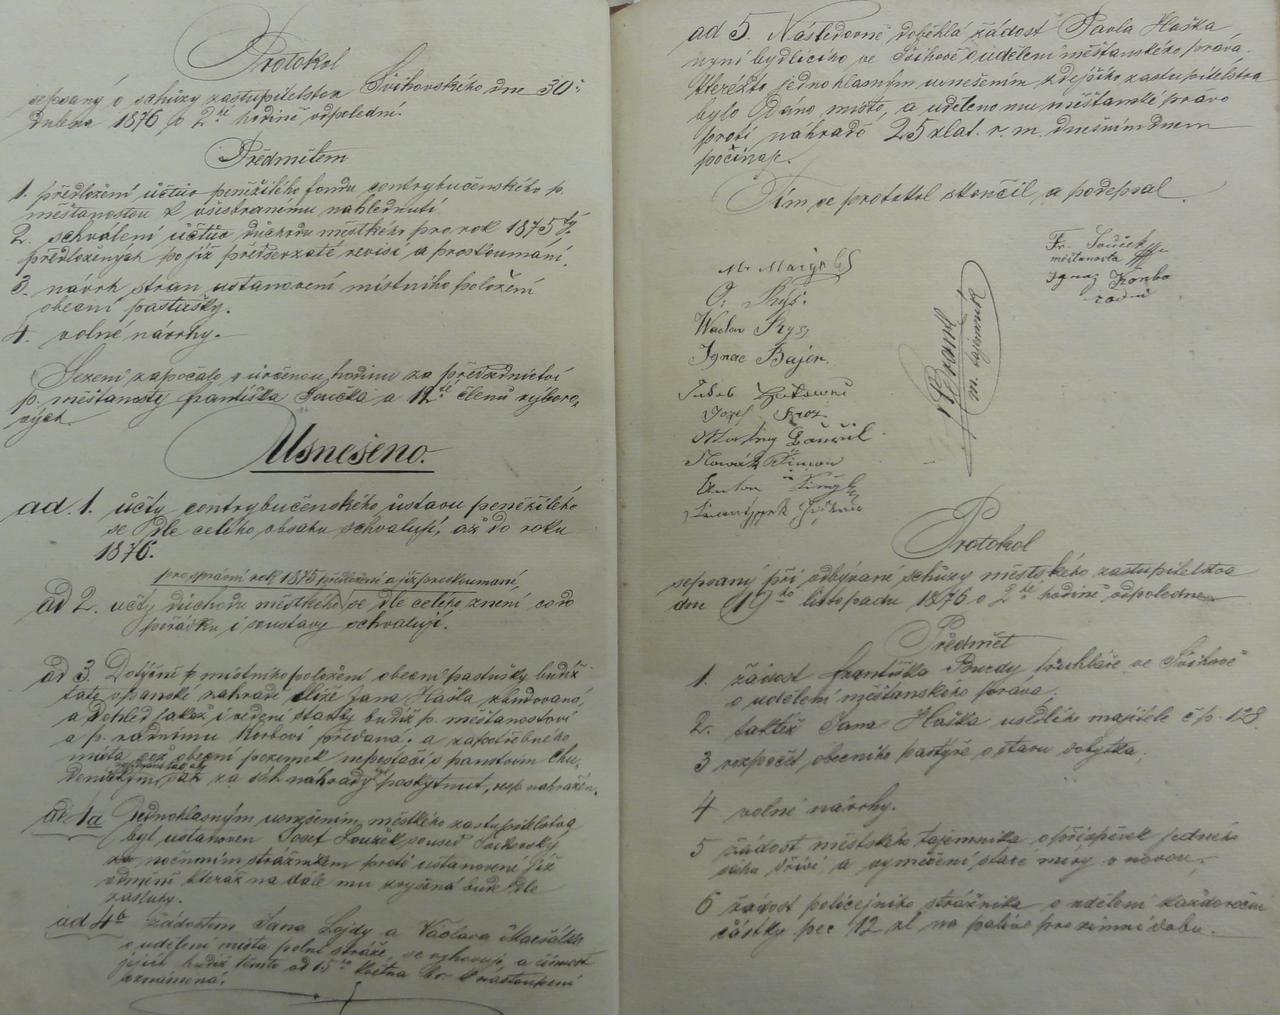 Protokol
sepsaný o schůzy zastupitelstva Švihovského dne 30:
dubna 1876 o 2té hodině odpolední.
Předmětem
1. předložení účtův peněžitého fondu contrybučenského p.
měšťanostou k všestranému nahlednutí.
2. schválení účtův důchodu městkého pro rok 1875
předložených po již předsevzaté revisi a proskoumání.
3. návrh stran ustanovení místního položení
obecní pastušky.
4. volné návrhy.
Sezení započalo v určenou hodinu za předsednictví
p. měšťanosty Františka Součka a 12té členů výboro-
vých.
Usnešeno.
ad. 1. účty contrybučenského ústavu peněžitého
se dle celého obsahu schvalují, až do roku
1876.
pro správní rok 1875 předložení a již proskoumaní
ad 2. účty důchodu městkého se dle celého znění co do
pořádku i soustavy schvalují.
ad 3. Dotýčení místního položení obecní pastušky budiž
tato panské nahradě blíže Jana Haška zbudovaná,
a dohled jakož i vedení stavby budiž p. měšťanostovi
a p. radnímu Körbovi předaná. a zapotřebného
místa což obecní pozemek nepostačí s panstvím Chu-
denickým, za náhrady poskytnut, resp. nahražen.
ad 4a Jednohlasným usnešením městkého zastupitelstva
byl ustanoven Josef Soused Švihovský
nočním strážníkem proti ustanovené již
odměně kteráž na dále mu zvýšená bude dle
zásluhy.
ad 4b Žádostem Jana Lojdy a Václava Maršálka
o udělení místa polní stráže, se vyhovují, a činnost
jejich budiž tímto od 15ho května k nastoupení
oznámená.
ad 5. Následovně doběhlá žádost Pavla Haška
nyní bydlícího ve Švihově o udělení měšťanského práva.
Kterážto jednohlasným usnešením zdejšího zastupitelstva
bylo dáno místo, a uděleno mu měšťanské právo
proti náhradě 25 zlat. r. m. dnešním dnem
počínaje.
Tím se protokol skončil a podepsal.
Fr. Souček
měšťanosta
Ignaz Körbo
radní
O. Ryš.
Waclav Ryss
Ignac Bajer.
Jakub
Josef
Martin
Nowák Šimon
Anton
tajemník
Protokol
sepsaný při odbývané schůzy městského zastupitelstva
dne 19ho listopadu 1876 o 2té hodině odpoledne
Předmět
1. žádost Františka Burdy truhláře ve Švihově
o udělení měšťanského práva.
2. taktéž Jana Haška usedlého majitele č p. 128
3 rozpočet obecního pastýře o stavu dobytka.
4 volné návrhy.
5 žádost městského tajemníka o příspěvek jednoho
sáhu dříví, a vyměření staré míry v novou.
6 žádost policejního strážníka o udělení každoroční
částky per 12 zl na palivo pro zimní dobu.